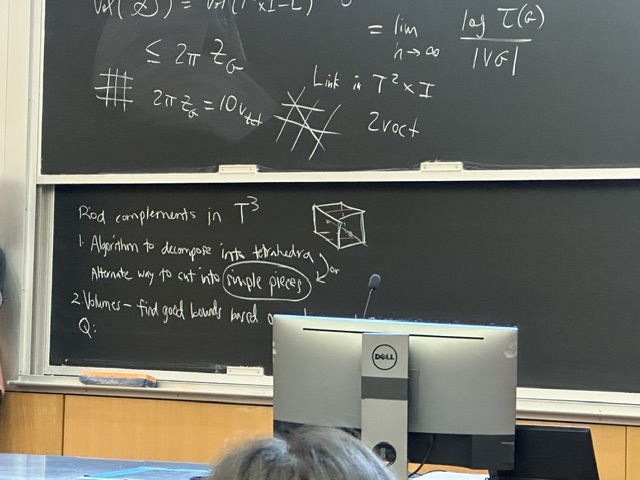 Vol( ) = Vol(T²×I-L)
≤ 2π Z_G
2π Z_G = 10 v_tet
= lim n→∞ log τ(G) / |VG|
Link in T²×I
2voct
Rod complements in T³
1. Algorithm to decompose into tetrahedra
or
Alternate way to cut into simple pieces
2. Volumes – find good bounds based
Q:
DELL